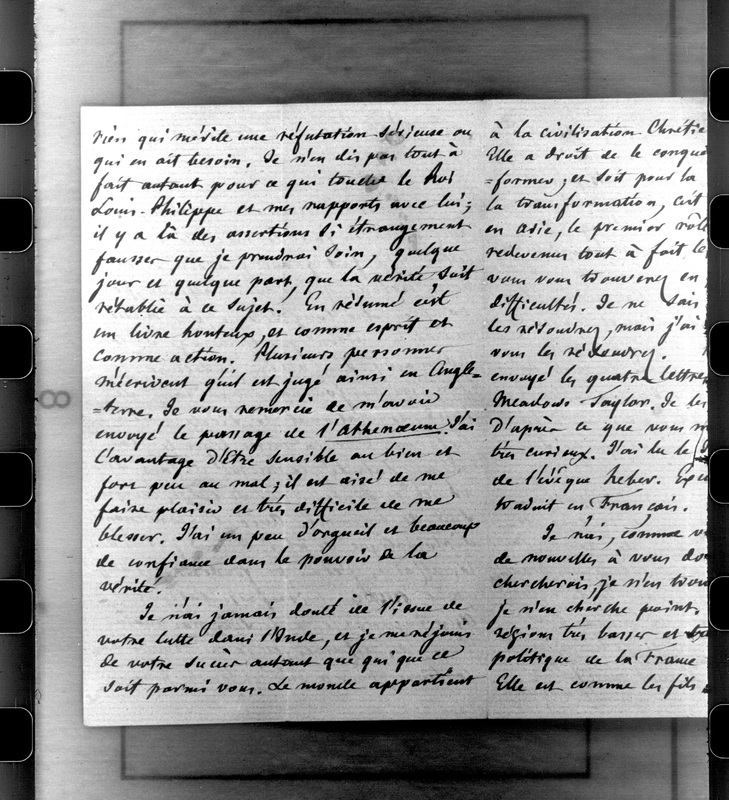 rien qui mérite une réfutation sérieuse ou
qui en ait besoin. Je n'en dis pas tout à
fait autant pour ce qui touche le Roi
Louis-Philippe et mes rapports avec lui;
il y a là des assertions si étrangement
fausses que je prendrai soin, quelque
jour et quelque part, que la vérité soit
rétablie à ce sujet. En résumé c'est
un livre honteux, et comme esprit et
comme action. Plusieurs personnes
m'écrivent qu'il est jugé ainsi en Angle=
=terre. Je vous remercie de m'avoir
envoyé le passage de l'Athenœum. J'ai
l'avantage d'être sensible au bien et
fort peu au mal; il est aisé de me
faire plaisir et très difficile de me
blesser. J'ai un peu d'orgueil et beaucoup
de confiance dans le pouvoir de la
vérité.
Je n'ai jamais douté de l'issue de
votre lutte dans l'Inde, et je me réjouis
de votre succès autant que qui que ce
soit parmi vous. Le monde appartient
à la civilisation Chrétie
Elle a droit de le conqué
=former, et soit pour la
la transformation, c'est
en Asie, le premier rôle
redevenus tout à fait le
vous vous trouverez en
difficultés. Je ne sais
les résoudrez, mais j'ai
vous les résoudrez.
envoyé les quatre lettres
Meadows Taylor. Je les
D'après ce que vous m
très curieux. J'ai lu le
de l'évêque Heber.
traduit en Français.
Je n'ai, comme v
de nouvelles à vous do
chercherois, je n'en trouv
je n'en cherche point.
régions très basses et
politique de la France
Elle est comme les fils
8